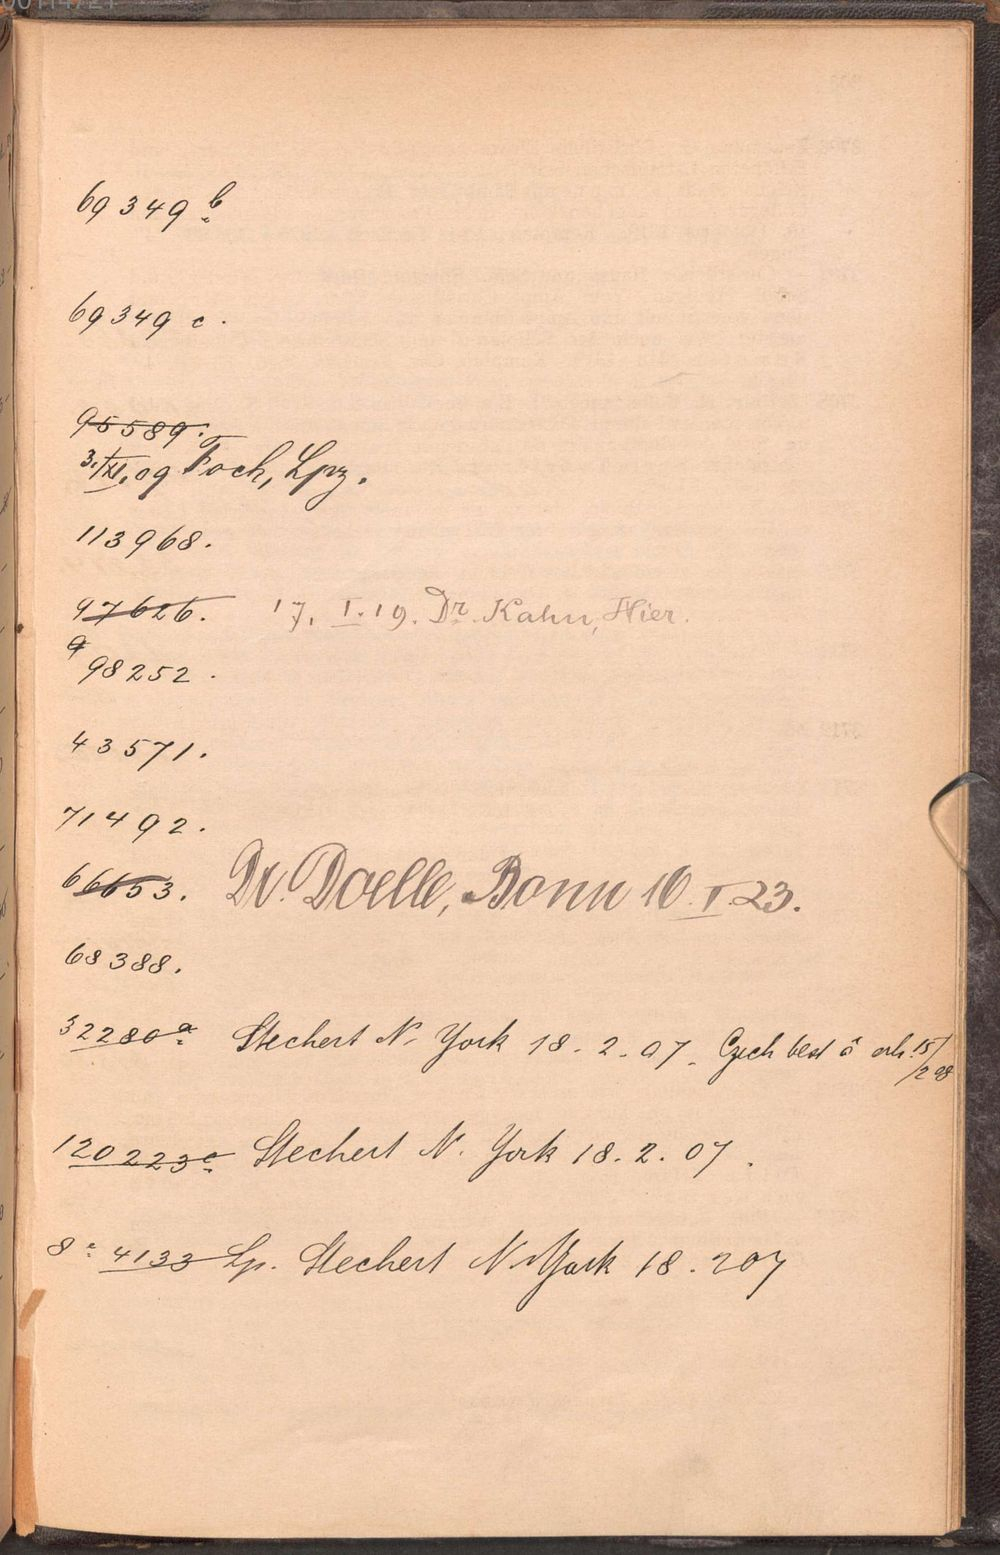 69349 b
69349 c.
95589.
3./XI.09 Foch, Lpz.
113968.
97626. 17. I. 19. Dr. Kahn, Hier.
a
98252.
43571.
71492.
66653. Dr. Doelle, Bonn 10. I. 23.
68388.
32280 a Stechert N. York 18. 2. 07. Czech best
15/
/2 08
120223 c Stechert N. York 18. 2. 07.
8° 4133 Lp. Stechert N. York 18. 2 07